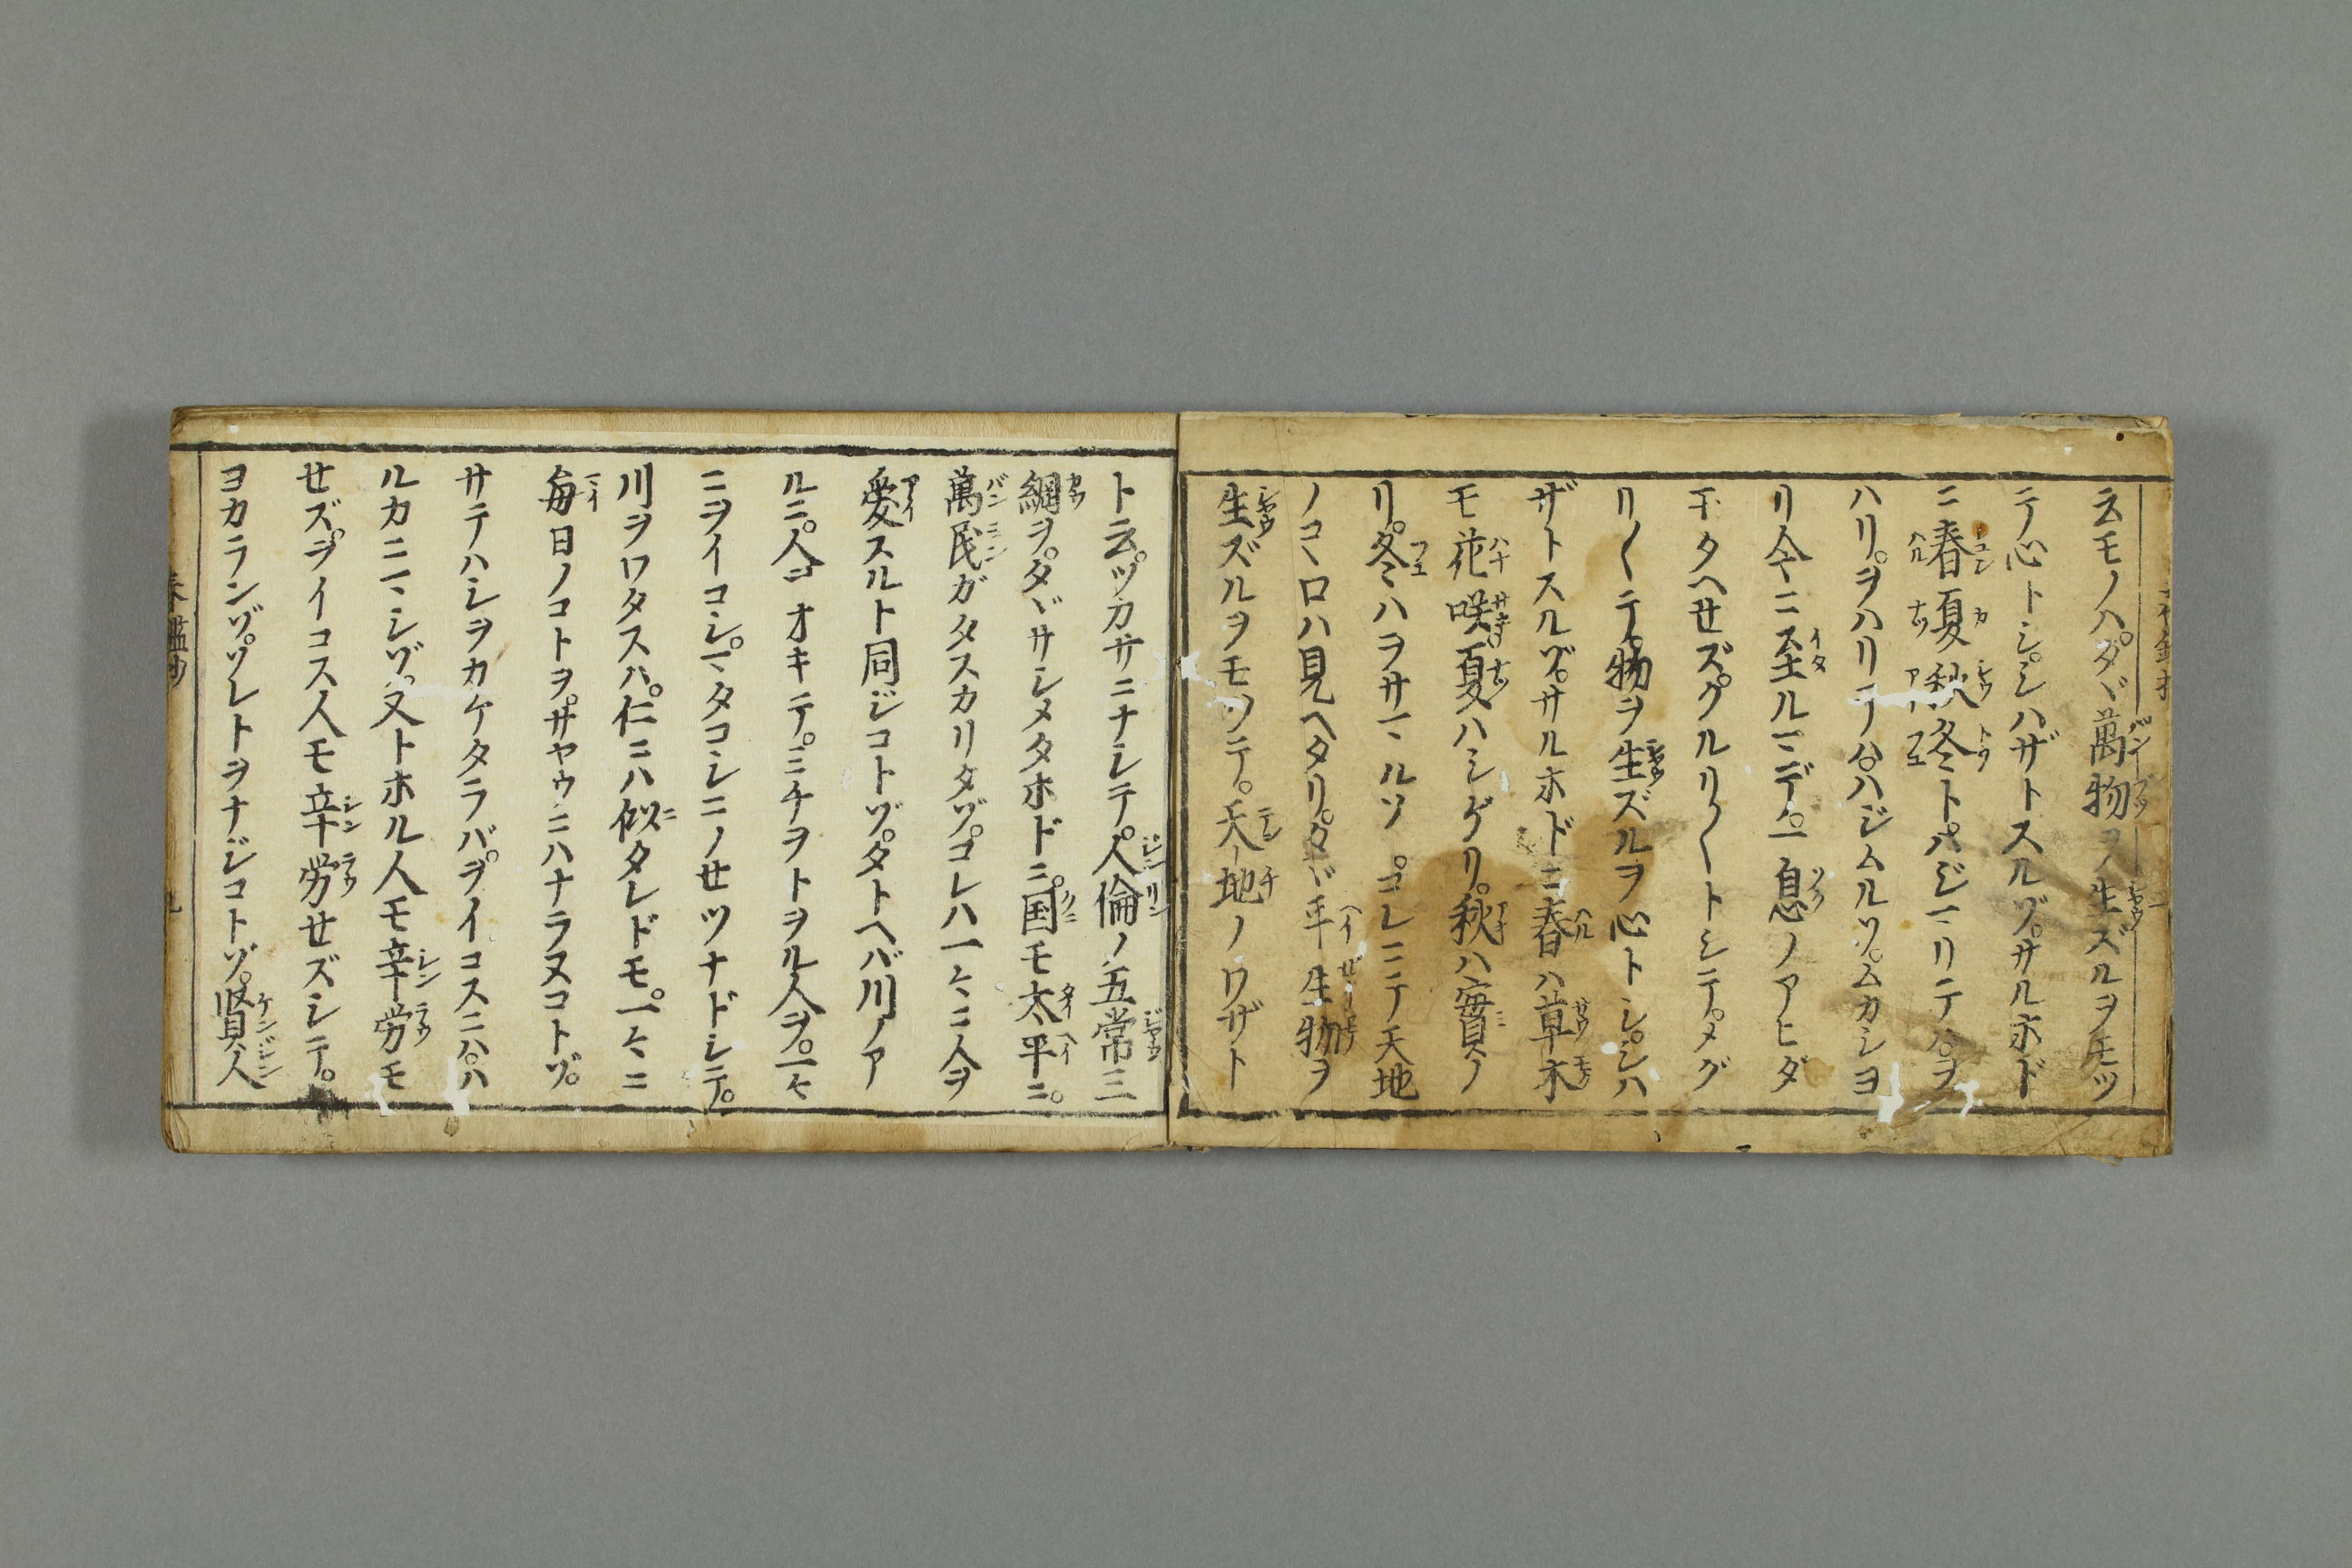 云モノハ。タヾ萬物ヲ生ズルヲモツ
テ心トシ。シハザトスルゾ。サルホド
ニ春夏秋冬ト。ハジマリテハ。ヲ
ハリ。ヲハリテハ。ハジムルソ。ムカシヨ
リ今ニ至ルマデ。一息ノアヒダ
モタヘセズ。グルリ〱トシテ。メグ
リ〱テ。物ヲ生ズルヲ心トシ。シハ
ザトスルゾ。サルホドニ春ハ草木
モ花咲。夏ハシゲリ。秋ハ實ノ
リ。冬ハヲサマルソ。コレニテ天地
ノコヽロハ見ヘタリ。タヾ平生物ヲ
生ズルヲモツテ。天地ノワザト
ト云。ツカサニナシテ。人倫ノ五常三
綱ヲ。タヾサシメタホドニ。国モ太平ニ。
萬民ガタスカリタゾ。コレハ一々ニ人ヲ
愛スルト同ジコトゾ。タトヘバ川ノア
ルニ。人コヽオキテ。ミチヲトヲル人ヲ。一々
ニヲイコシ。マタコシニノセツナドシテ。
川ヲワタスハ。仁ニハ似タレドモ。一々ニ
毎日ノコトヲ。サヤウニハナラヌコトゾ。
サテハシヲカケタラバ。ヲイコスニハ。ハ
ルカニマシゾ。又トホル人モ辛労モ
せズ。ヲイコス人モ辛労せズシテ。
ヨカランゾ。ソレトヲナジコトゾ。賢人